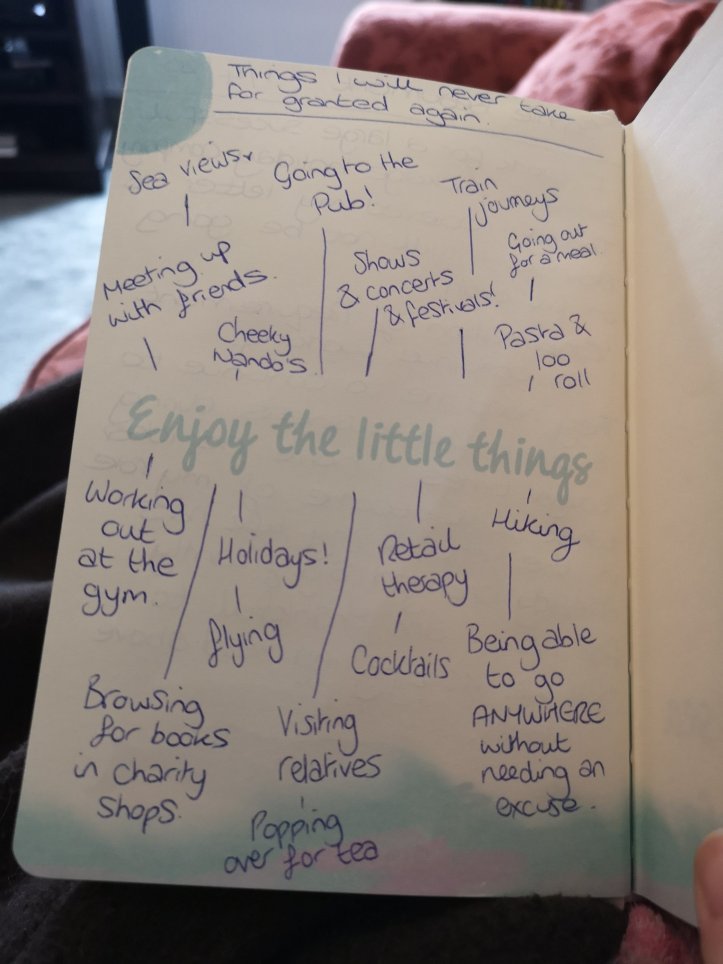 Things I will never take
for granted again.
Sea views
Going to the
Pub!
Train
journeys
Meeting up
with friends.
Shows
& concerts
& festivals!
Going out
for a meal
Cheeky
Nando's
Pasta &
loo
roll
Enjoy the little things
Working
out
at the
gym.
Holidays!
flying
Retail
therapy
Cocktails
Hiking
Being able
to go
ANYWHERE
without
needing an
excuse.
Browsing
for books
in charity
shops.
Visiting
relatives
Popping
over for tea